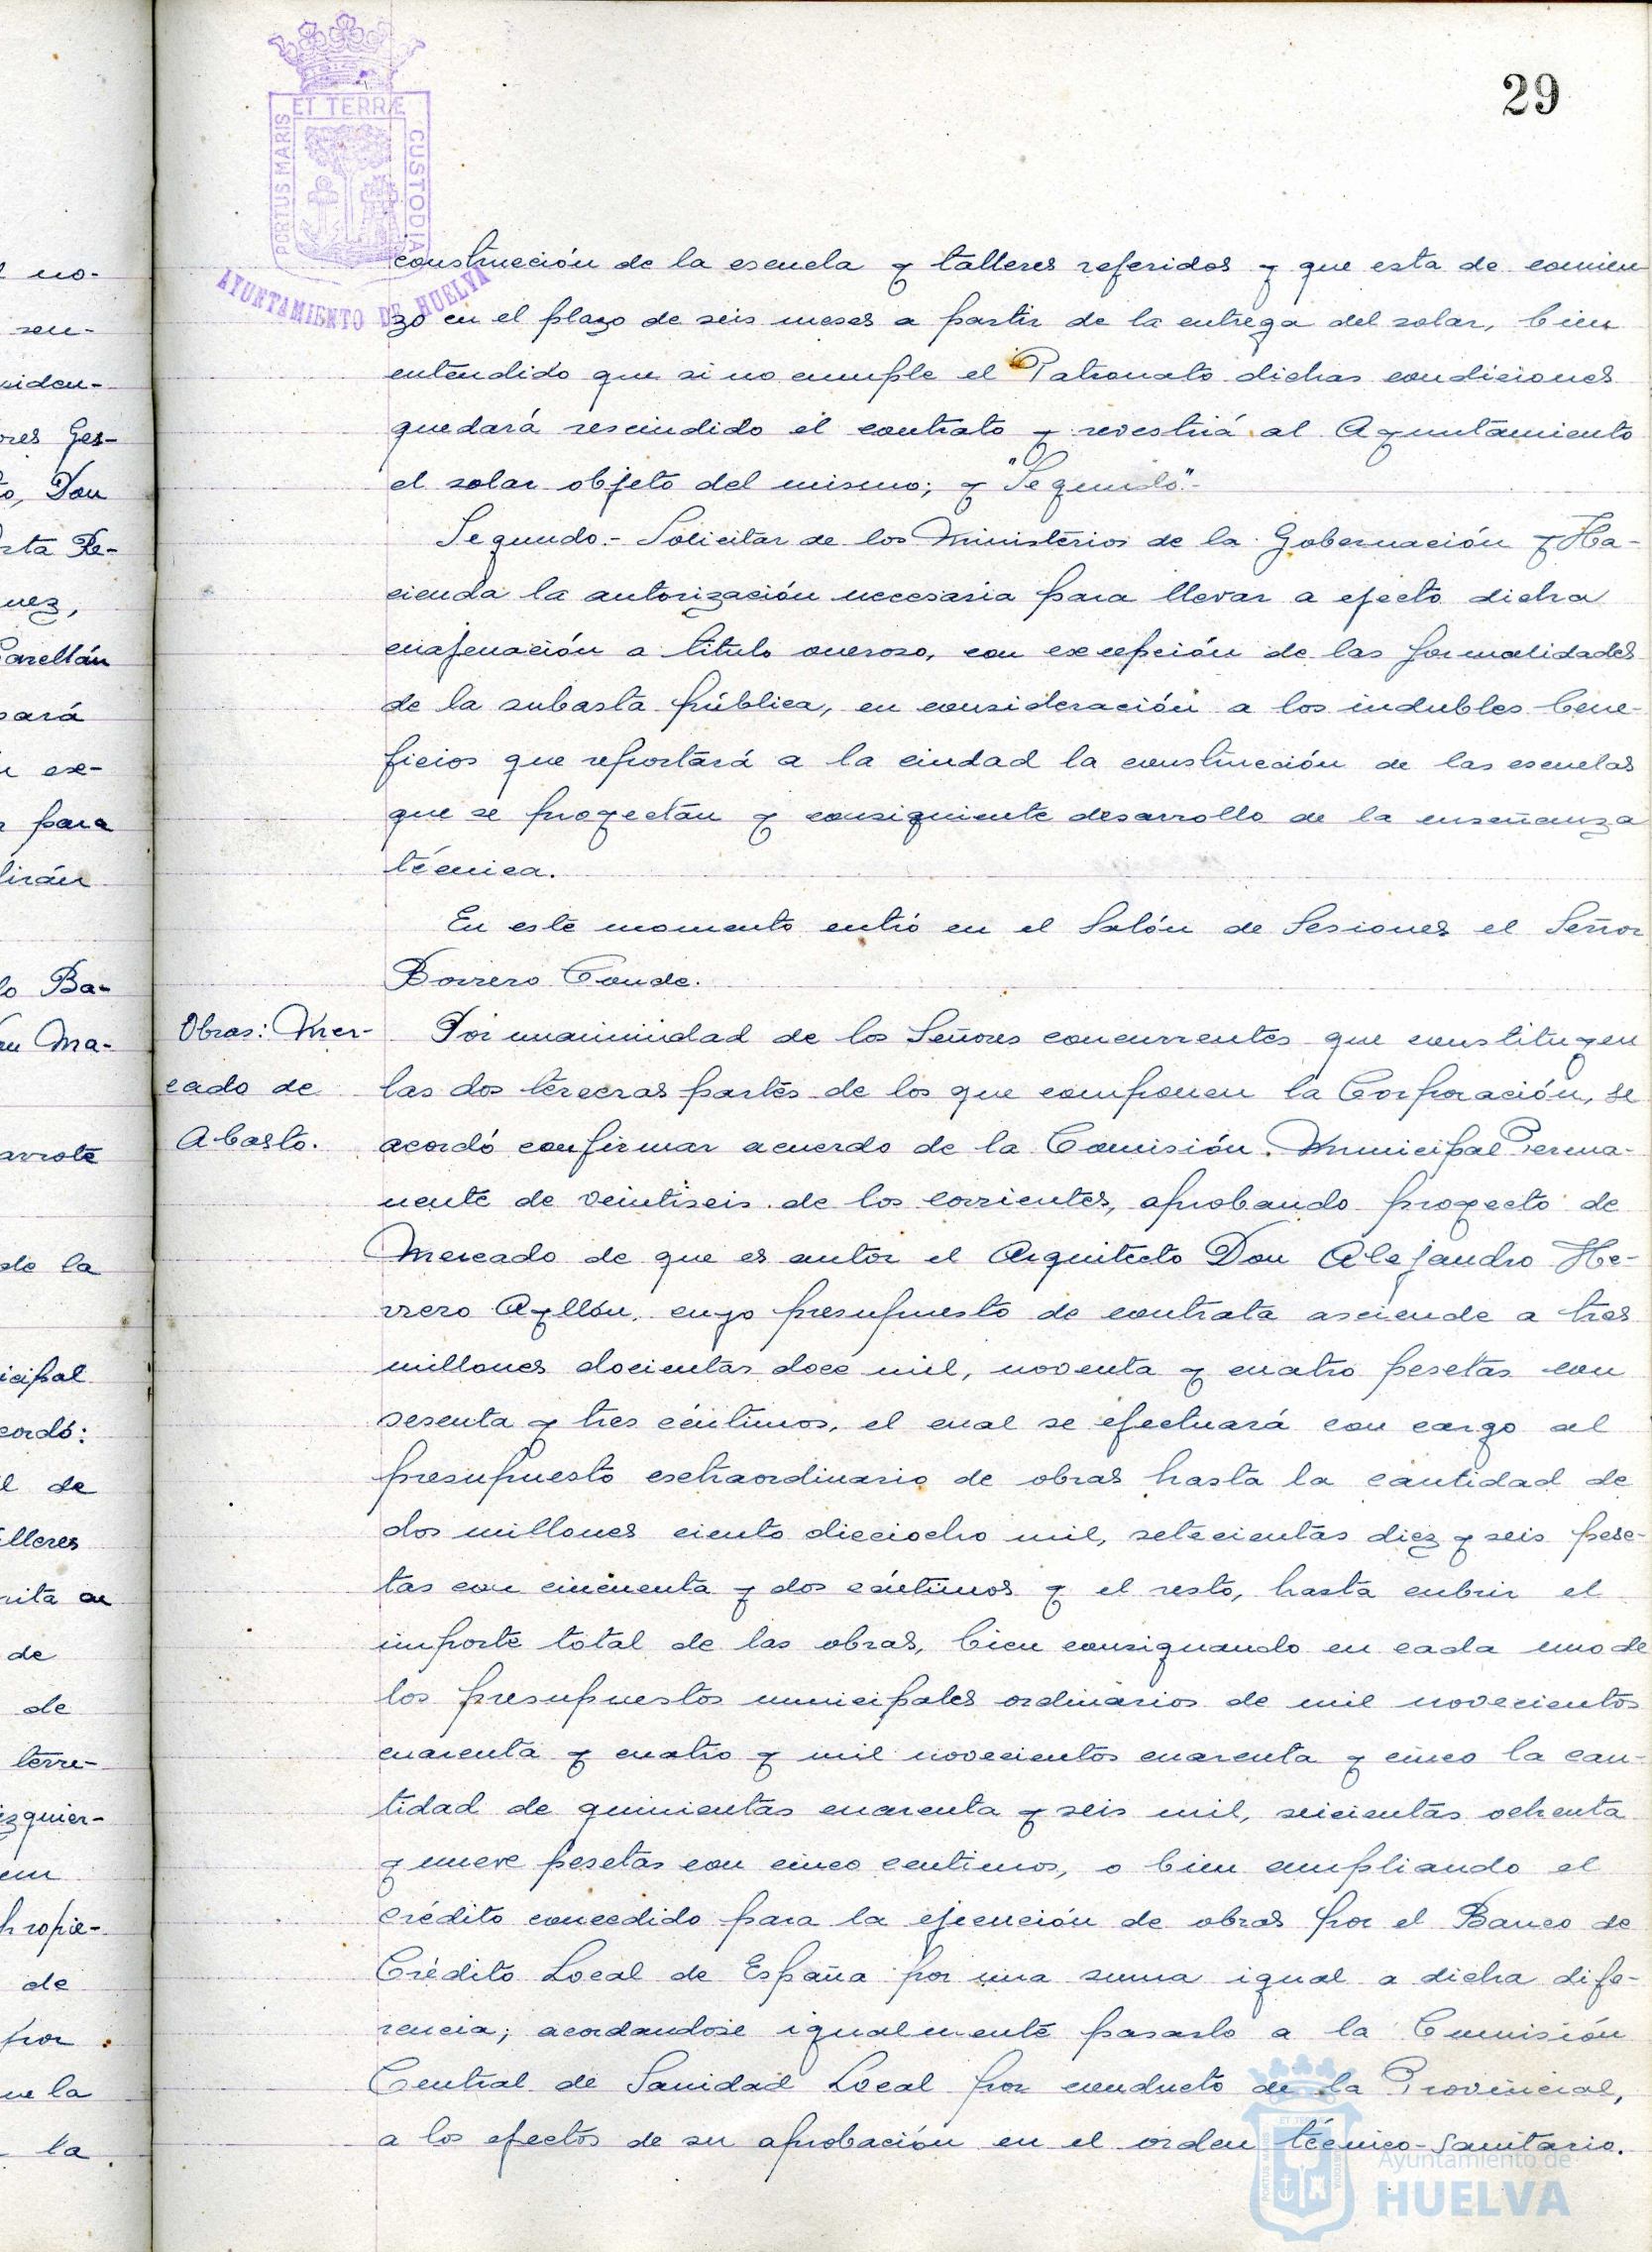 29
ET TERRÆ
PORTUS MARIS
CUSTODIA
AYUNTAMIENTO DE HUELVA
construcción de la escuela y talleres referidos y que esta de comien-
zo en el plazo de seis meses a partir de la entrega del solar, bien
entendido que si no cumple el Patronato dichas condiciones
quedará rescindido el contrato y revestirá al Ayuntamiento
el solar objeto del mismo; y "Segundo".-
Segundo.- Solicitar de los Ministerios de la Gobernación y Ha-
cienda la autorización necesaria para llevar a efecto dicha
enajenación a título oneroso, con excepción de las formalidades
de la subasta pública, en consideración a los indubles bene-
ficios que reportará a la ciudad la construcción de las escuelas
que se proyectan y consiguiente desarrollo de la enseñanza
técnica.
En este momento entró en el Salón de Sesiones el Señor
Borrero Conde.
Obras: Mer-
cado de
Abasto.
Por unanimidad de los Señores concurrentes que constituyen
las dos terceras partes de los que componen la Corporación, se
acordó confirmar acuerdo de la Comisión Municipal Perma-
nente de veintiseis de los corrientes, aprobando proyecto de
Mercado de que es autor el Arquitecto Don Alejandro He-
rrero Ayllón, cuyo presupuesto de contrata asciende a tres
millones docientas doce mil, noventa y cuatro pesetas con
sesenta y tres céntimos, el cual se efectuará con cargo al
presupuesto extraordinario de obras hasta la cantidad de
dos millones ciento dieciocho mil, setecientas diez y seis pese-
tas con cincuenta y dos céntimos y el resto, hasta cubrir el
importe total de las obras, bien consignando en cada uno de
los presupuestos municipales ordinarios de mil novecientos
cuarenta y cuatro y mil novecientos cuarenta y cinco la can-
tidad de quinientas cuarenta y seis mil, seicientas ochenta
y nueve pesetas con cinco centimos, o bien ampliando el
crédito concedido para la ejecución de obras por el Banco de
Crédito Local de España por una suma igual a dicha dife-
rencia; acordandose igualmente pasarlo a la Comisión
Central de Sanidad Local por conducto de la Provincial,
a los efectos de su aprobación en el orden técnico-sanitario.
Ayuntamiento de
HUELVA